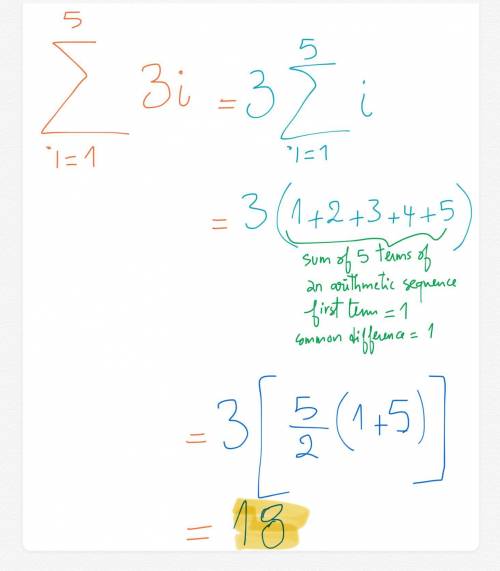 5
∑ 3i = 3 ∑ i
i=1
5
i=1
= 3 (1+2+3+4+5)
sum of 5 terms of
an arithmetic sequence
first term = 1
common difference = 1
= 3 [ 5/2 (1+5) ]
= 18